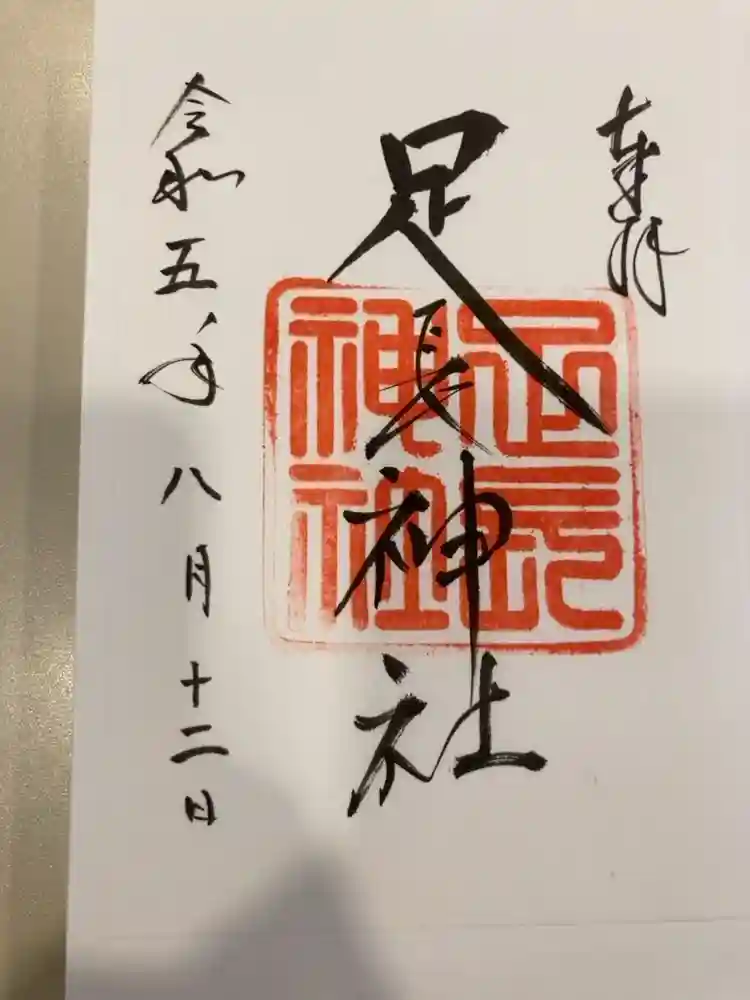 奉拝
足長神社
足長
神社
令和五年八月十二日